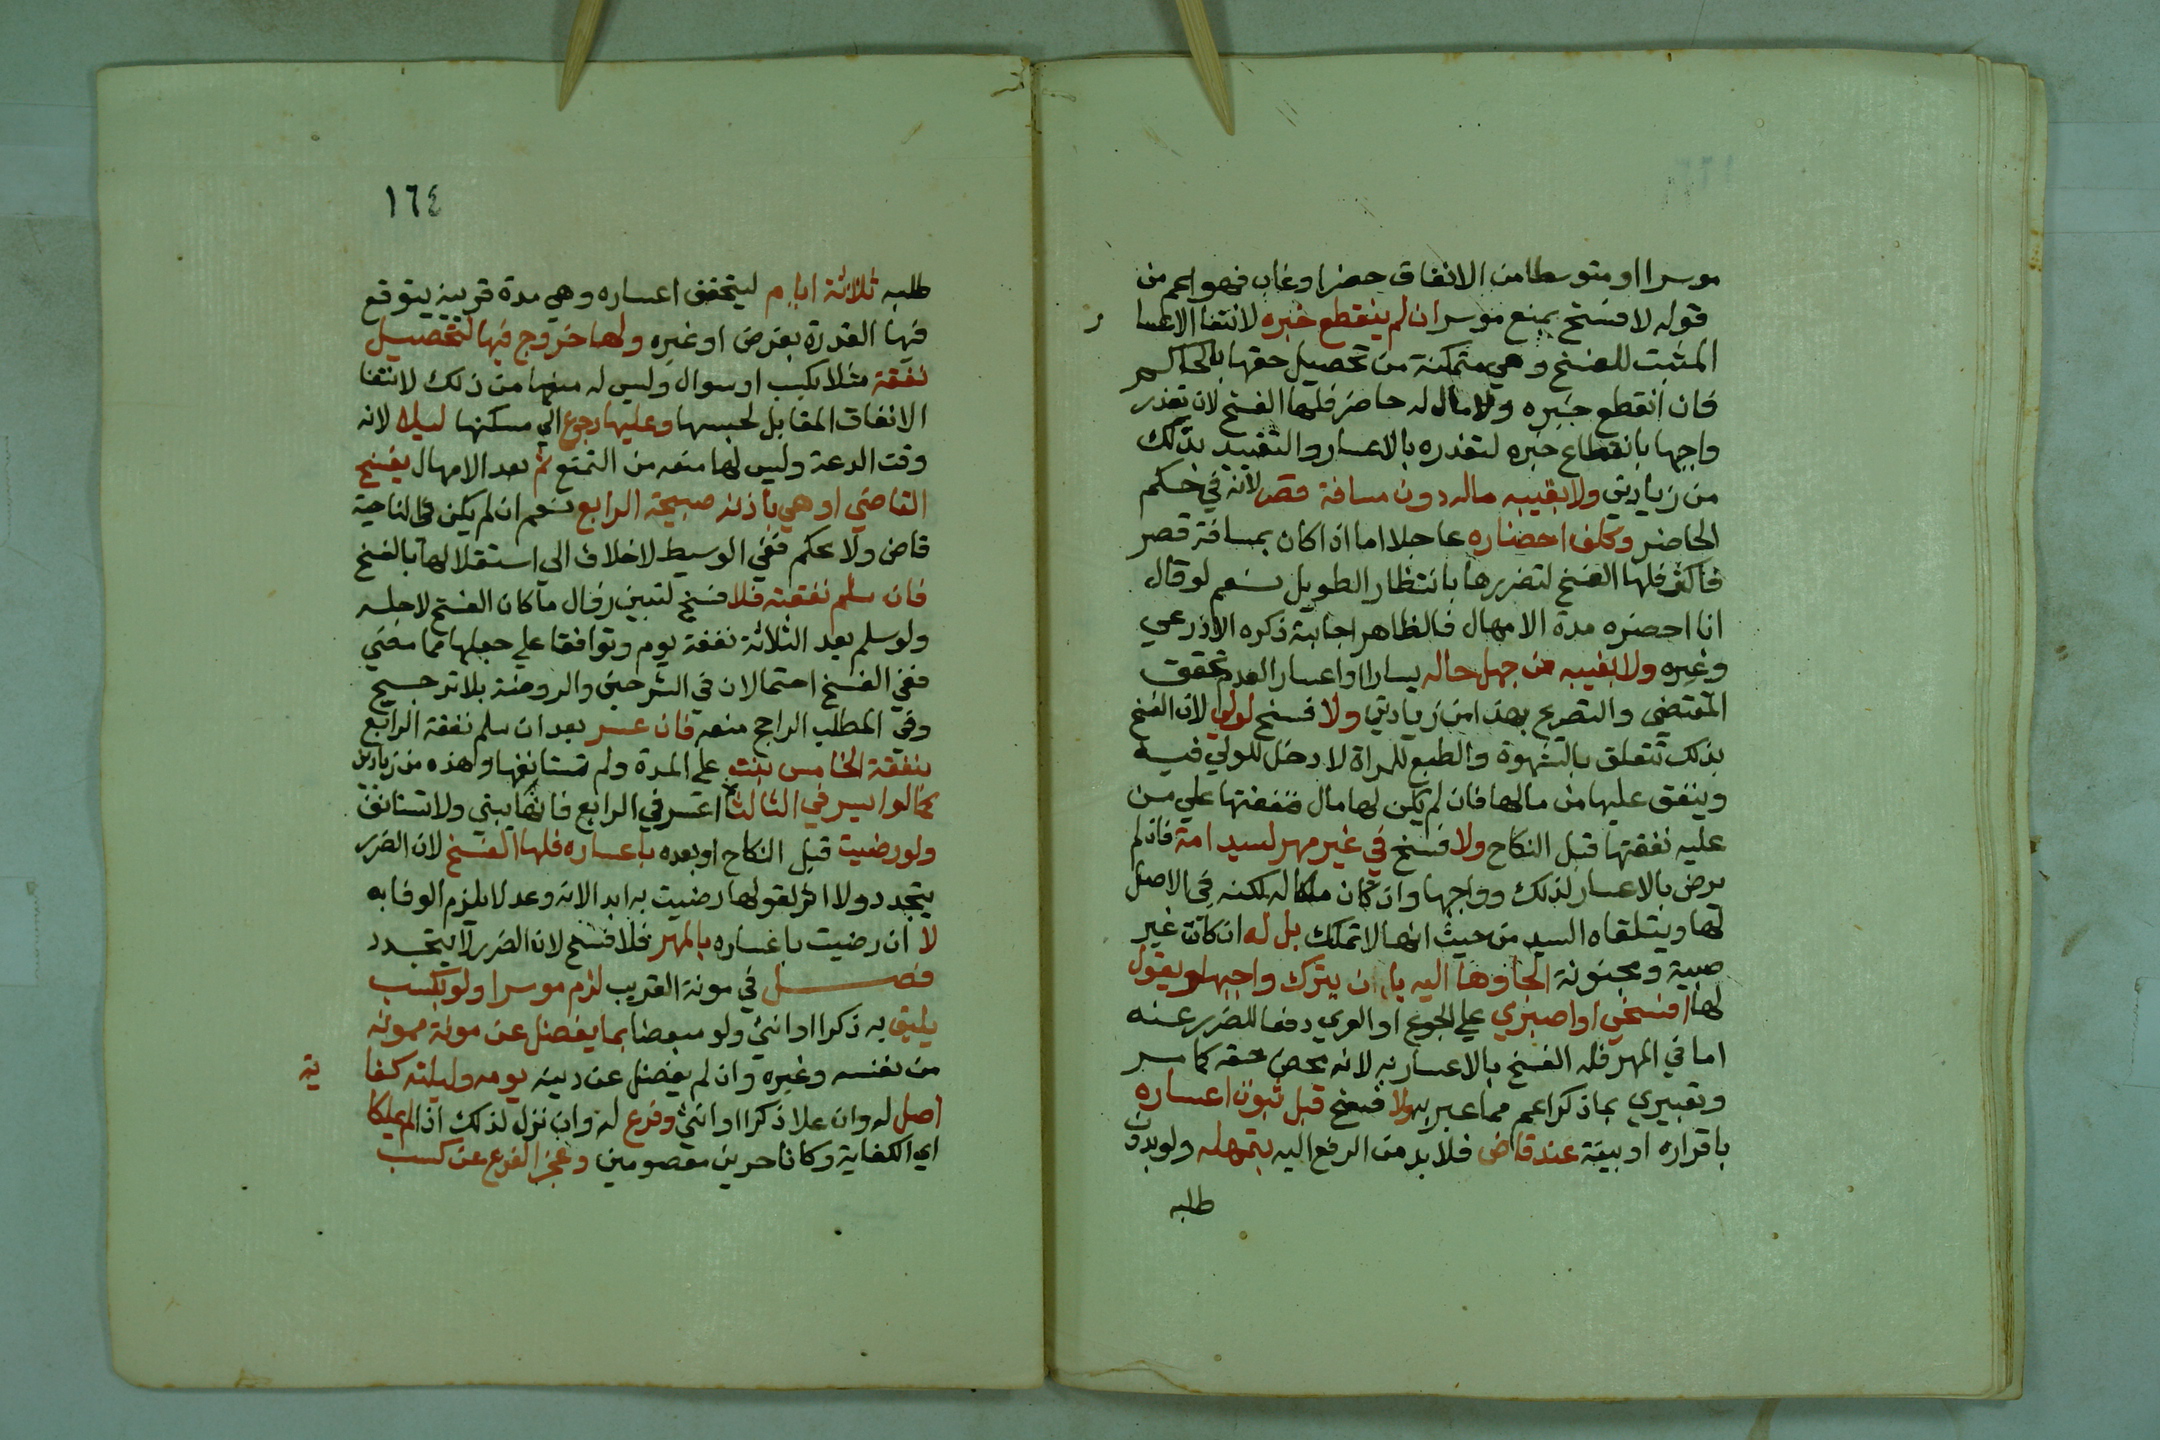 موسرا او متوسطا من الانفاق حضرا وغاب فهو اعم من
قوله لا فسخ بمنع موسر ان لم ينقطع خبره لانتفا الاعسا
ر
المثبت للفسخ وهي متمكنة من تحصيل حقها بالحاكم
فان انقطع خبره ولا مال له حاضر فلها الفسخ لان تعذر
واجبها بانقطاع خبره لتعذره بالاعسار والتقييد بذلك
من زيادتي ولا بغيبه ماله دون مسافة قصر لانه في حكم
الحاضر وكلف احضاره عاجلا اما اذا كان بمسافة قصر
فاكثر فلها الفسخ لتضررها بانتظار الطويل نعم لو قال
انا احضره مدة الامهال فالظاهر اجابته ذكره الاذرعي
وغيره ولا بغيبه من جهل حاله يسارا او اعسارا لعدم تحقق
المقتضي والتصريح بهذا من زيادتي ولا فسخ لولي لان الفسخ
بذلك تتعلق بالشهوة والطبع للمراة لا دخل للولي فيه
وينفق عليها من مالها فان لم يكن لها مال فنفقتها علي من
عليه نفقتها قبل النكاح ولا فسخ في غير مهر لسيد امة فان لم
يرض بالاعسار لذلك وواجبها وان كان ملكا له لكنه في الاصل
لها ويتلقاه السيد من حيث انها لا تملك بل له ان كانت غير
صبية ومجنونة الجاوها اليه بان يترك واجبها ويقول
لها افسخي او اصبري علي الجوع او العري دفعا للضرر عنه
اما في المهر فله الفسخ بالاعسار به لانه محض حقه كما مر
وتعبيري بما ذكر اعم مما عبر به ولا فسخ قبل ثبوت اعساره
باقراره او بينة عند قاض فلا بد من الرفع اليه بتمهله ولو بدون
طلبه
١٦٤
طلبه ثلاثة ايام ليتحقق اعساره وهي مدة قريبة يتوقع
فيها القدرة بقرض او غيره ولها خروج فيها لتحصيل
نفقة مثلا بكسب او سوال وليس له منعها من ذلك لانتفا
الانفاق المقابل لحبسها وعليها رجوع الي مسكنها ليلا لانه
وقت الدعة وليس لها منعه من التمتع ثم بعد الامهال يفسخ
القاضي او هي باذنه صبيحة الرابع نعم ان لم يكن في الناحية
قاض ولا محكم ففي الوسيط لا خلاف الي استقلالها بالفسخ
فان سلم نفقته فلا فسخ لتبين زوال ما كان الفسخ لاجله
ولو سلم بعد الثلاثة نفقة يوم وتوافقا علي جعلها مما مضي
ففي الفسخ احتمالان في الشرحين والروضة بلا ترجيح
وفي المطلب الراجح منعه فان عسر بعد ان سلم نفقة الرابع
بنفقة الخامس بنت علي المدة ولم تستانفها وهذه من زيادتي
كما لو ايسر في الثالث ثم اعسر في الرابع فانها تبني ولا تستانف
ولو رضيت قبل النكاح او بعده باعساره فلها الفسخ لان الضرر
يتجدد ولا اثر لقولها رضيت به ابدا لانه وعد لا يلزم الوفا به
لا ان رضيت باعساره بالمهر فلا فسخ لان الضرر لا يتجدد
فصل في مونة القريب لزم موسرا ولو بكسب
يليق به ذكرا او انثي ولو مبعضا بما يفضل عن مونة ممونه
من نفسه وغيره وان لم يفضل عن دينه يومه وليلته كفا
ية
اصل له وان علا ذكرا او انثي وفرع له وان نزل لذلك اذا لم يملكا
اي الكفاية وكانا حرين معصومين وعجز الفرع عن كسب